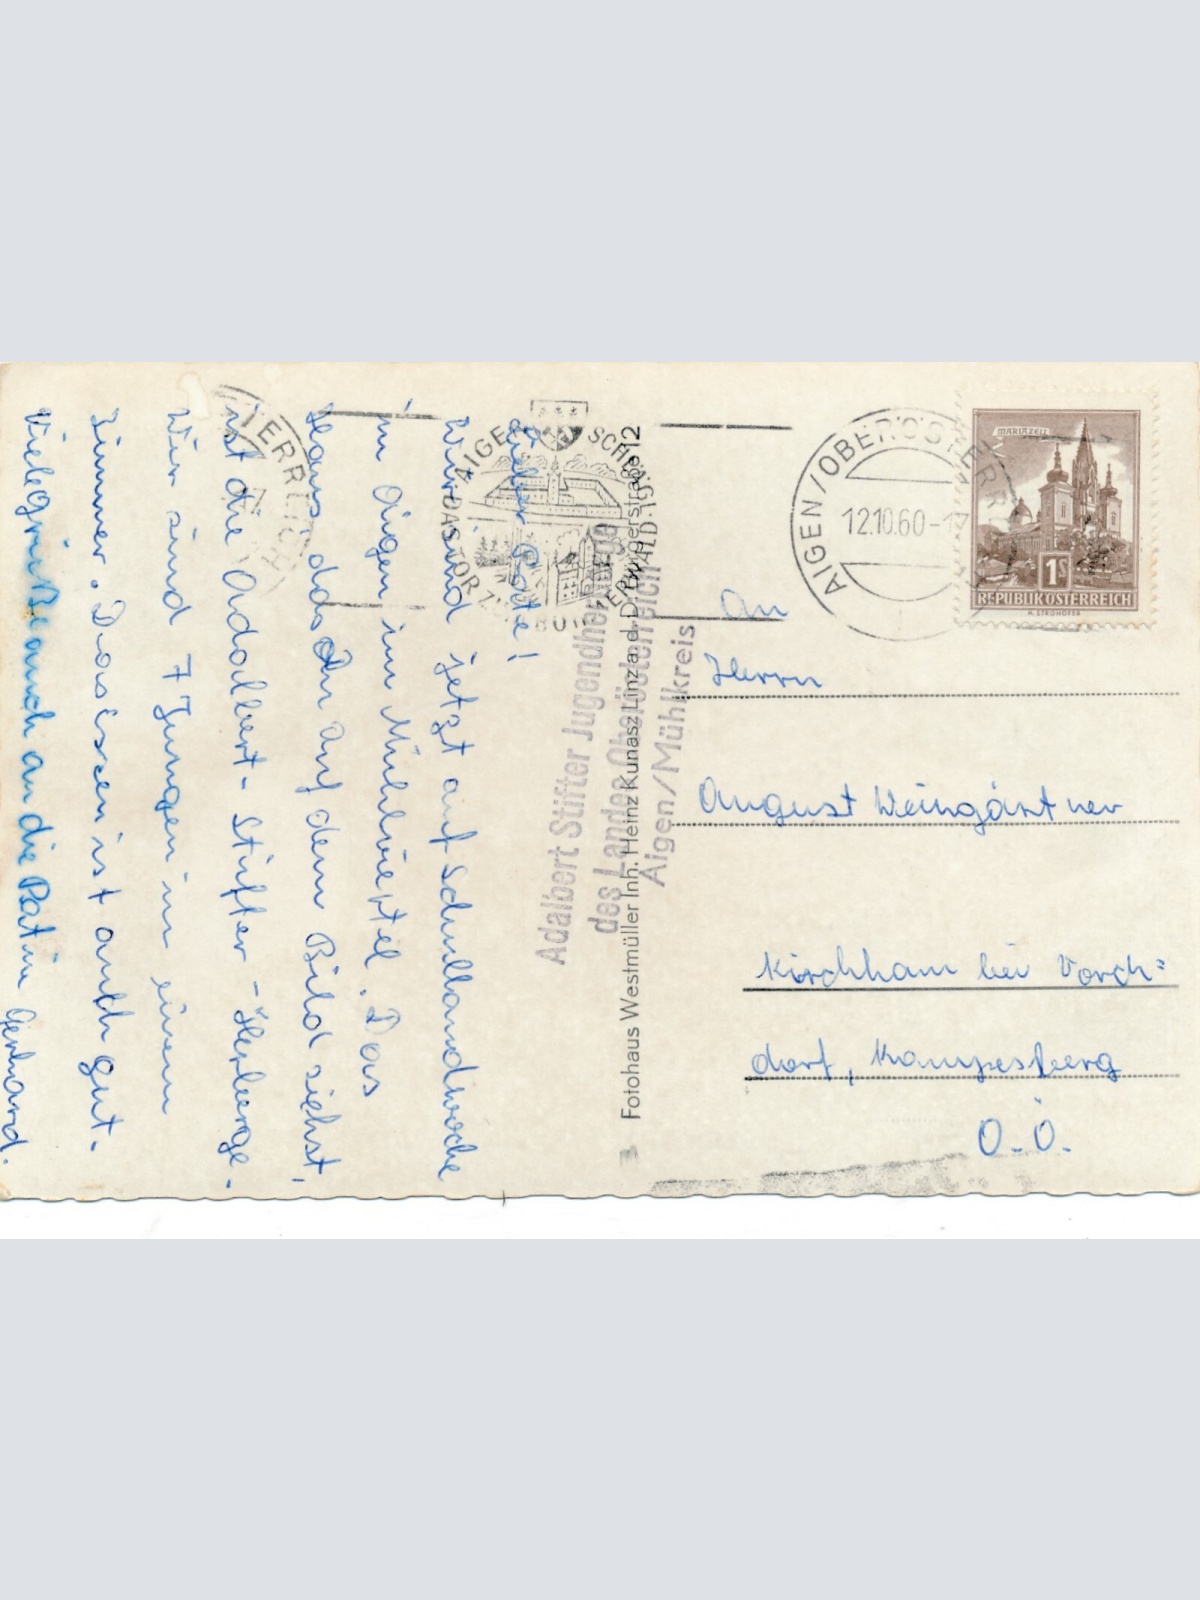 Lieber Pate!
Wir sind jetzt auf Schullandwoche
in Aigen im Mühlviertel. Das
Haus, das Du auf dem Bild siehst,
ist die Adalbert-Stifter-Herberge.
Wir sind 7 Jungen in einem
Zimmer. Das Essen ist auch gut.
Viele Grüße auch an die Patin Gerhard.
Adalbert Stifter Jugendherberge
des Landes Oberösterreich
Aigen/Mühlkreis
Fotohaus Westmüller Inh. Heinz Kunasz Linz a. d. D.
12
AIGEN
SCHLÄGL
DAS TOR ZUM BÖHMERWALD
AIGEN/OBERÖSTERR
12.10.60-1
MARIAZELL
1S
REPUBLIK ÖSTERREICH
H. STROHOFER
An
Herrn
August Weingärtner
Kirchham bei Vorch=
dorf, Kampesberg
O.Ö.